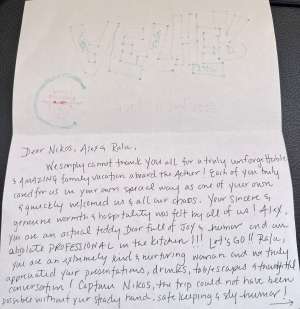 Dear Nikos, Alex & Rala,
We simply cannot thank you all for a truly unforgettable
& AMAZING family vacation aboard the Aether! Each of you truly
cared for us in your own special way as one of your own
& quickly welcomed us & all our chaos. Your sincere &
genuine warmth & hospitality was felt by all of us! Alex,
you are an actual teddy bear full of joy & humor and an
absolute PROFESSIONAL in the kitchen!!! Let's GO!! Rala,
you are an extremely kind & nurturing woman and we truly
appreciated your presentations, drinks, tablescapes & thoughtful
conversation! Captain Nikos, the trip could not have been
possible without your steady hand, safe keeping & sly humor!